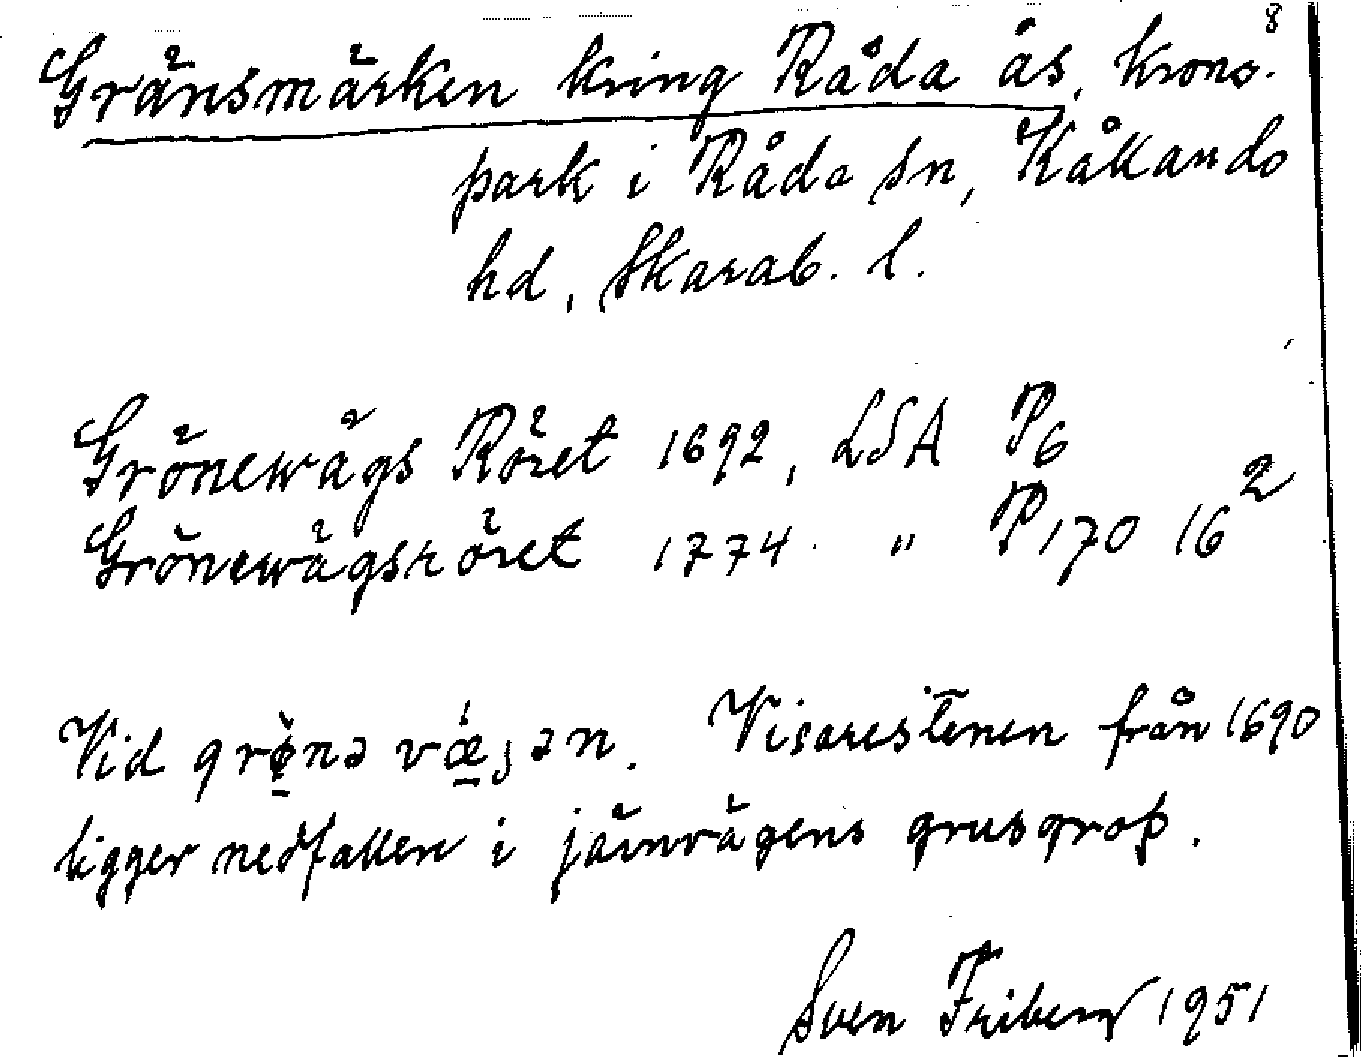 8
Gränsmärken kring Råda ås, krono-
park i Råda sn, Kållands
hd, Skarab. l.
Grönewägs Röret 1692, LSA P6
Grönewägsröret 1774 " P170 16²
Vid grø̀nə vǽgən. Visarestenen från 1690
ligger nedfallen i järnvägens grusgrop.
Sven Friberg 1951